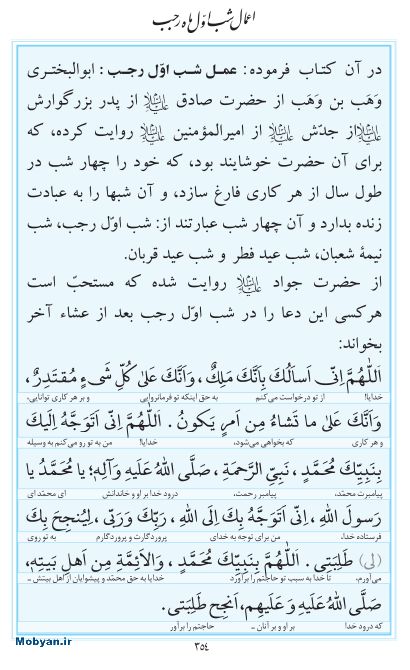 اعمال شب اوّل ماه رجب
در آن کتاب فرموده: عمـل شـب اوّل رجـب: ابوالبختری
وَهَب بن وَهَب از حضرت صادق علیه‌السلام از پدر بزرگوارش
علیه‌السلام از جدّش علیه‌السلام از امیرالمؤمنین علیه‌السلام روایت کرده، که
برای آن حضرت خوشایند بود، که خود را چهار شب در
طول سال از هر کاری فارغ سازد، و آن شبها را به عبادت
زنده بدارد و آن چهار شب عبارتند از: شب اوّل رجب، شب
نیمهٔ شعبان، شب عید فطر و شب عید قربان.
از حضرت جواد علیه‌السلام روایت شده که مستحبّ است
هرکسی این دعا را در شب اوّل رجب بعد از عشاء آخر
بخواند:
اَللّٰهُمَّ اِنّی اَسأَلُكَ بِاَنَّكَ مَلِكٌ، وَاَنَّكَ عَلیٰ کُلِّ شَیءٍ مُقتَدِرٌ،
خدایا! از تو درخواست می‌کنم به حق اینکه تو فرمانروایی و بر هر کاری توانایی،
وَاَنَّكَ عَلیٰ ما تَشاءُ مِن اَمرٍ یَکونُ. اَللّٰهُمَّ اِنّی اَتَوَجَّهُ اِلَیكَ
و هر کاری که بخواهی می‌شود، خدایا! من به تو رو می‌کنم به وسیله
بِنَبِیِّكَ مُحَمَّدٍ، نَبِیِّ الرَّحمَةِ، صَلَّی اللهُ عَلَیهِ وَآلِهِ؛ یا مُحَمَّدُ یا
پیامبرت محمّد، پیامبر رحمت، درود خدا بر او و خاندانش ای محمّد ای
رَسولَ اللهِ، اِنّی اَتَوَجَّهُ بِكَ اِلَی اللهِ، رَبِّكَ وَرَبّی، لِیُنجِحَ بِكَ
فرستاده خدا، من برای توجه به خدای پروردگارت و پروردگارم به تو روی
(لی) طَلِبَتی. اَللّٰهُمَّ بِنَبِیِّكَ مُحَمَّدٍ، وَالاَئِمَّةِ مِن اَهلِ بَیتِهِ،
می‌آورم، تا خدا به سبب تو حاجتم را برآورد خدایا به حق محمّد و پیشوایان از اهل بیتش ـ
صَلَّی اللهُ عَلَیهِ وَعَلَیهِم، اَنجِح طَلِبَتی.
که درود خدا بر او و بر آنان ـ حاجتم را برآور
Mobyan.ir
۳۵۴